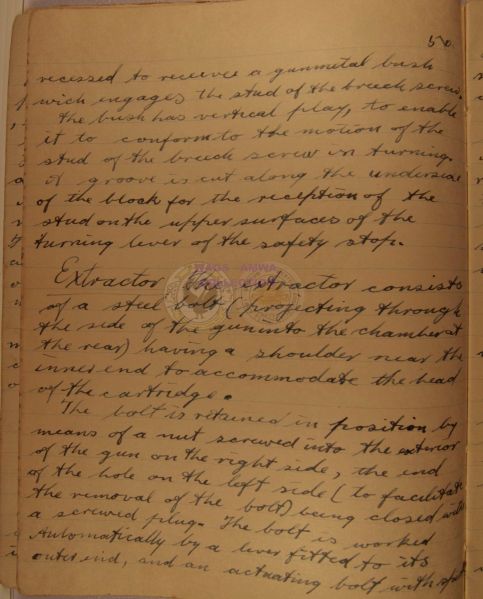 50.
recessed to receive a gunmetal bush
wich engages the stud of the breech screw.
The bush has vertical play, to enable
it to conform to the motion of the
stud of the breech screw in turning.
A groove is cut along the underside
of the block for the reception of the
stud on the upper surfaces of the
turning lever of the safety stop.
Extractor The extractor consists
of a steel bolt (projecting through
the side of the gun into the chamber at
the rear) having a shoulder near the
inner end to accommodate the head
of the cartridge.
The bolt is retained in position by
means of a nut screwed into the exterior
of the gun on the right side, the end
of the hole on the left side (to facilitate
the removal of the bolt) being closed with
a screwed plug. The bolt is worked
Automatically by a lever fitted to its
outer end, and an actuating bolt with